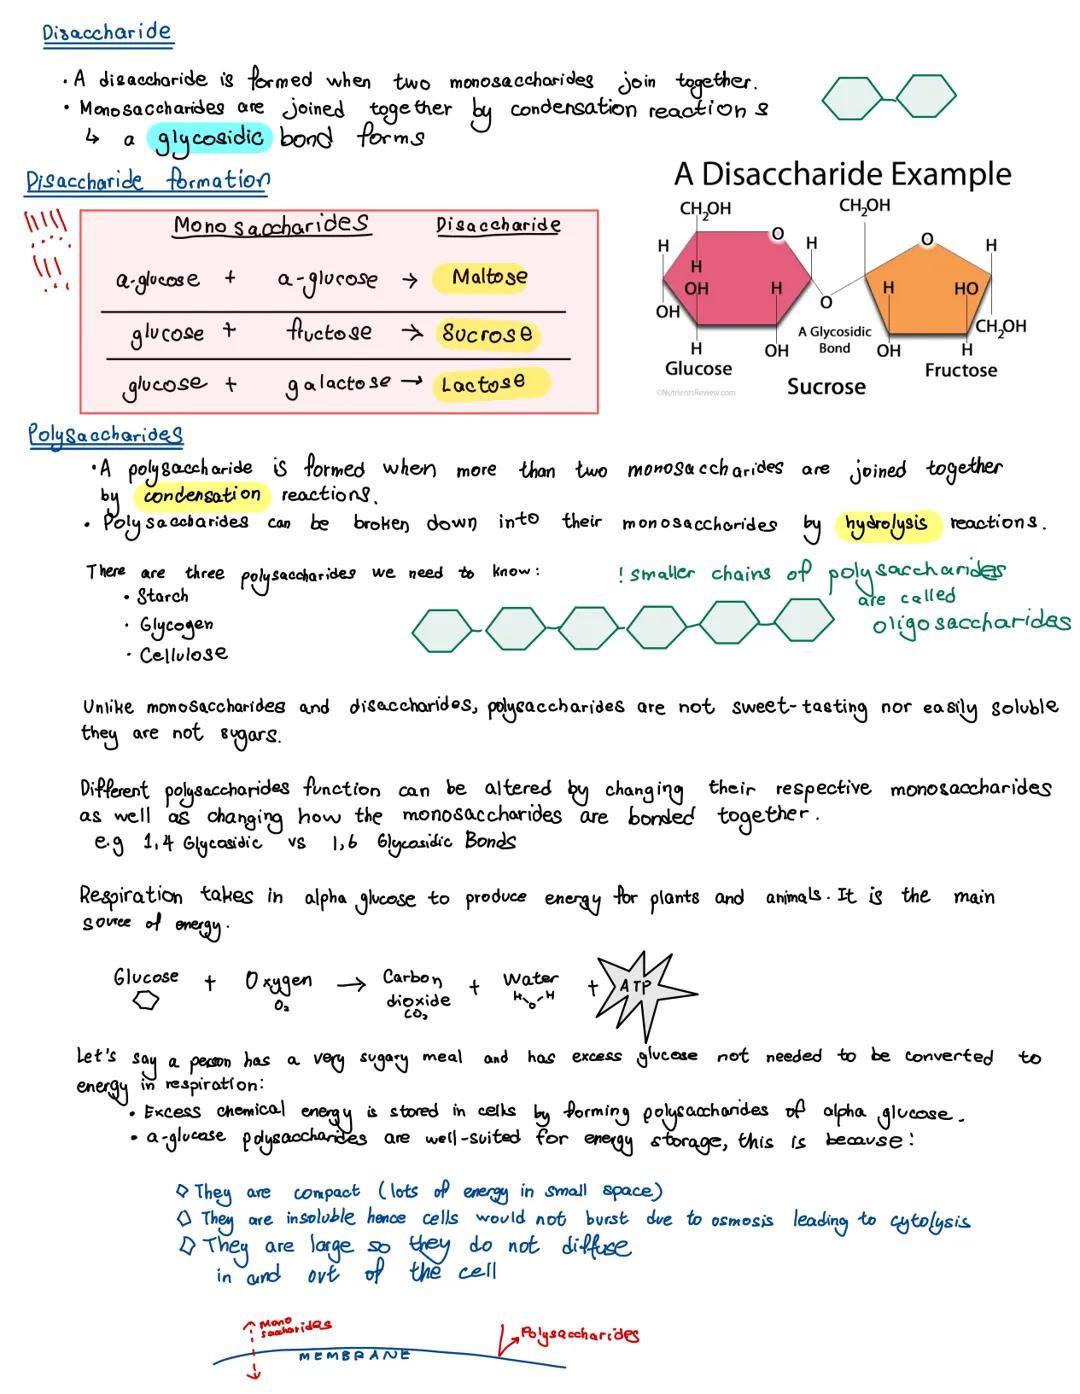 Disaccharide
• A disaccharide is formed when two monosaccharides join together.
• Monosaccharides are joined together by condensation reactions
↳ a glycosidic bond forms
Disaccharide formation
Monosaccharides Disaccharide
a-glucose + a-glucose → Maltose
glucose + fructose → Sucrose
glucose + galactose → Lactose
A Disaccharide Example
CH₂OH CH₂OH
O O
H H H
H
OH H H HO
OH O CH₂OH
A Glycosidic
Bond
H OH OH H
Glucose Fructose
Sucrose
©NutrientsReview.com
Polysaccharides
• A polysaccharide is formed when more than two monosaccharides are joined together
by condensation reactions.
• Polysaccharides can be broken down into their monosaccharides by hydrolysis reactions.
There are three polysaccharides we need to know:
• Starch
• Glycogen
• Cellulose
! smaller chains of polysaccharides
are called
oligosaccharides
Unlike monosaccharides and disaccharides, polysaccharides are not sweet-tasting nor easily soluble
they are not sugars.
Different polysaccharides function can be altered by changing their respective monosaccharides
as well as changing how the monosaccharides are bonded together.
e.g 1,4 Glycosidic vs 1,6 Glycosidic Bonds
Respiration takes in alpha glucose to produce energy for plants and animals. It is the main
source of energy.
Glucose + Oxygen → Carbon dioxide + Water + ATP
O₂ CO₂ H O H
Let's say a person has a very sugary meal and has excess glucose not needed to be converted to
energy in respiration:
• Excess chemical energy is stored in cells by forming polysaccharides of alpha glucose.
• a-glucose polysaccharides are well-suited for energy storage, this is because:
◇ They are compact (lots of energy in small space)
◇ They are insoluble hence cells would not burst due to osmosis leading to cytolysis
◇ They are large so they do not diffuse
in and out of the cell
Mono
saccharides
Polysaccharides
MEMBRANE